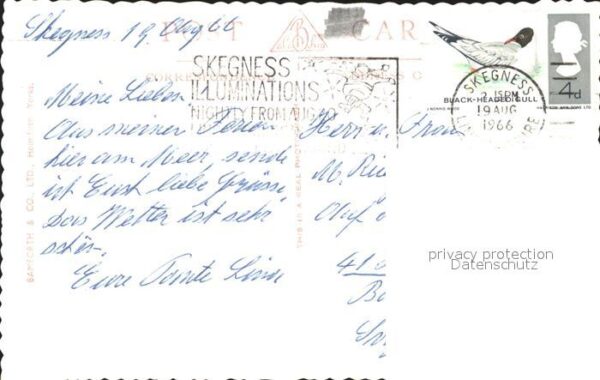 Skegness 19 Aug 66
POST CARD
SKEGNESS
ILLUMINATIONS
NIGHTLY FROM AUG
SKEGNESS
15PM
19 AUG
1966
BLACK-HEADED GULL
4d
Meine Lieben
Aus meinen Ferien
hier am Meer, sende
ist Euch liebe Grüsse,
Das Wetter ist sehr
schön.
Eure Tante
Herr u. Frau
M.
41
BAMFORTH & CO., LTD.
THIS IS A REAL PHOTO
privacy protection
Datenschutz